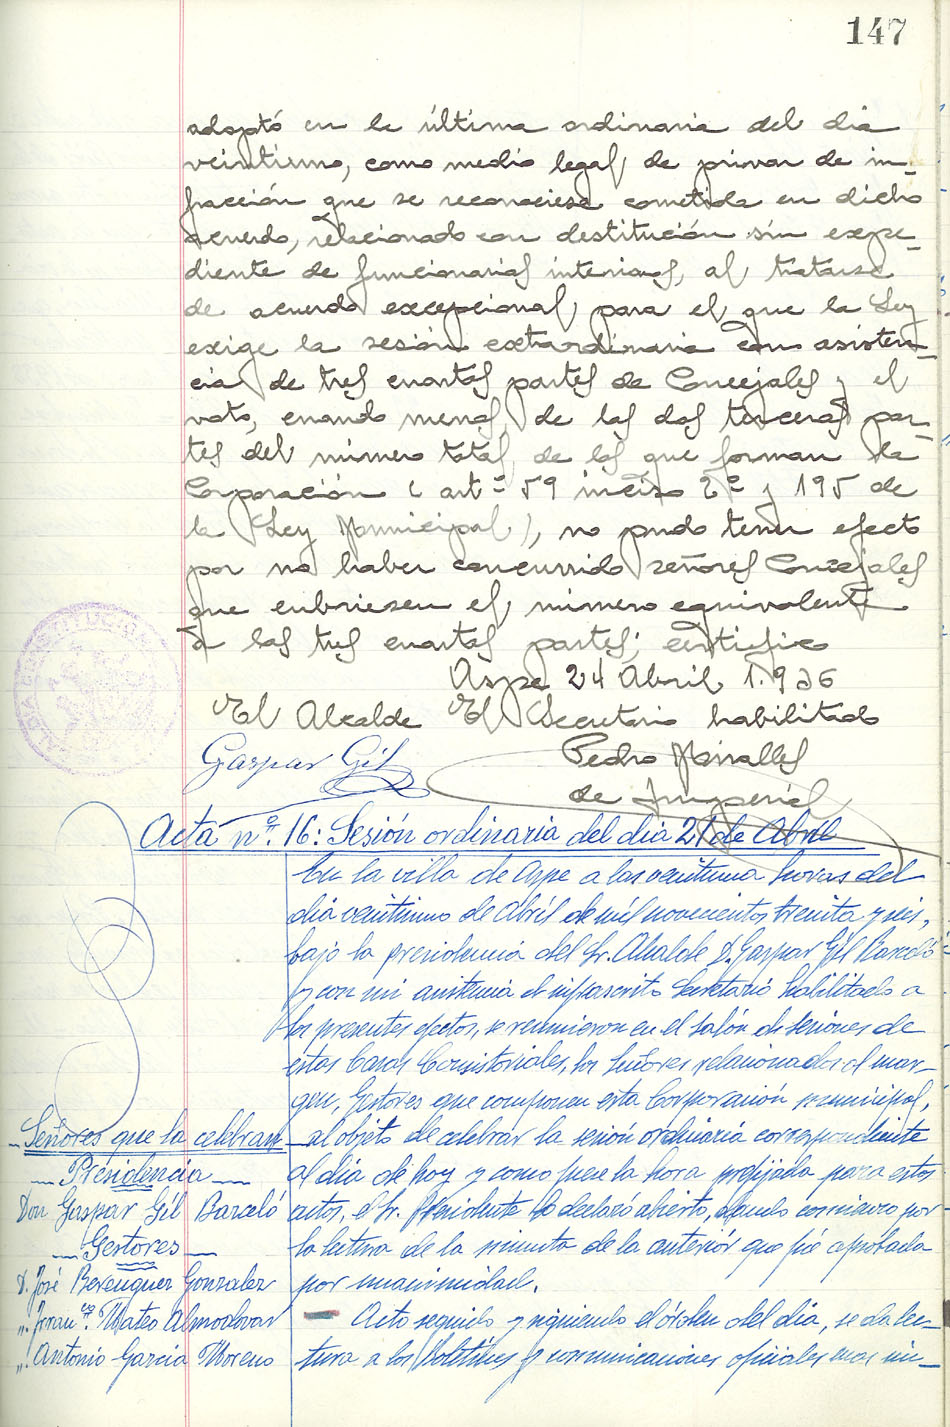 147
adoptó en la última ordinaria del dia
veintiuno, como medio legal de privar de in-
fracción que se reconociese cometida en dicho
acuerdo, relacionado con destitución sin expe-
diente de funcionarios interinos, al tratarse
de acuerdo excepcional para el que la Ley
exige la sesión extraordinaria con asisten-
cia de tres cuartas partes de Concejales y el
voto, cuando menos, de las dos terceras par-
tes del número total de los que forman la
Corporación (artº 59 inciso 2º y 195 de
la Ley Municipal), no pudo tener efecto
por no haber concurrido señores Concejales
que cubriesen el número equivalente
a las tres cuartas partes; certifico
Aspe 24 Abril 1.936
El Alcalde El Secretario habilitado
Gaspar Gil Pedro Miralles
de Imperial
Acta nº. 16: Sesión ordinaria del dia 21 de Abril
En la villa de Aspe a las veintiuna horas del
dia veintiuno de Abril de mil novecientos treinta y seis,
bajo la presidencia del Sr. Alcalde D. Gaspar Gil Barceló
y con mi asistencia el infrascrito Secretario habilitado a
los presentes efectos, se reunieron en el salón de sesiones de
estas Casas Consistoriales, los señores relacionados al mar-
gen, Gestores que componen esta Corporación municipal,
al objeto de celebrar la sesión ordinaria correspondiente
al dia de hoy y como fuese la hora prefijada para estos
actos, el Sr. Presidente lo declaró abierto, dando comienzo por
la lectura de la minuta de la anterior que fué aprobada
por unanimidad.
Acto seguido y siguiendo el órden del dia, se da lec-
tura a los Boletines y comunicaciones oficiales mas
Señores que la celebran
Presidencia
Don Gaspar Gil Barceló
Gestores
D. José Berenguer Gonzalez
„. Franco. Mateo Almodovar
„. Antonio Garcia Moreno